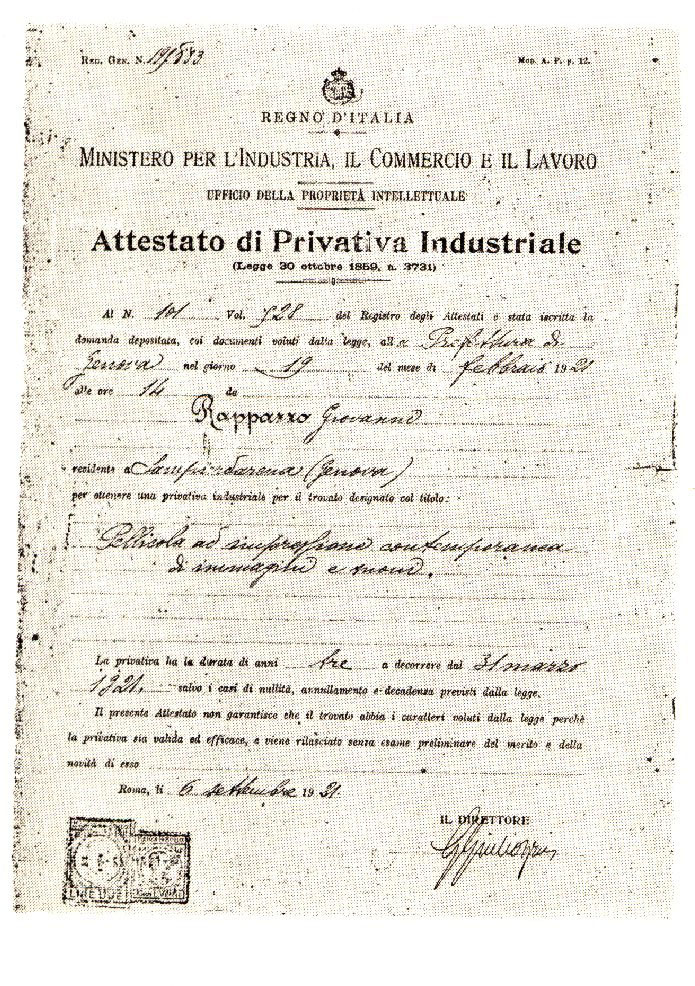 REG. GEN. N.
MOD. A. P. p. 12.
REGNO D'ITALIA
MINISTERO PER L'INDUSTRIA, IL COMMERCIO E IL LAVORO
UFFICIO DELLA PROPRIETÀ INTELLETTUALE
Attestato di Privativa Industriale
(Legge 30 ottobre 1859, n. 3731)
Al N. 101 Vol. 528 del Registro degli Attestati è stata iscritta la
domanda depositata, coi documenti voluti dalla legge, alla Prefettura di
Genova nel giorno 19 del mese di febbraio 1921
alle ore 14 da
Rapparzo Giovanni
residente a Sampierdarena (Genova)
per ottenere una privativa industriale per il trovato designato col titolo:
Pellicola ad impressione contemporanea
di immagini e suoni.
La privativa ha la durata di anni tre a decorrere dal 31 marzo
1921, salvo i casi di nullità, annullamento e decadenza previsti dalla legge.
Il presente Attestato non garantisce che il trovato abbia i caratteri voluti dalla legge perchè
la privativa sia valida ed efficace, e viene rilasciato senza esame preliminare del merito e della
novità di esso
Roma, li 6 settembre 1921.
IL DIRETTORE